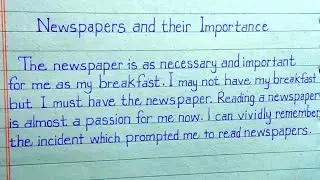 Newspapers and their Importance
The newspaper is as necessary and important
for me as my breakfast. I may not have my breakfast
but I must have the newspaper. Reading a newspaper
is almost a passion for me now. I can vividly remember
the incident which prompted me to read newspapers.